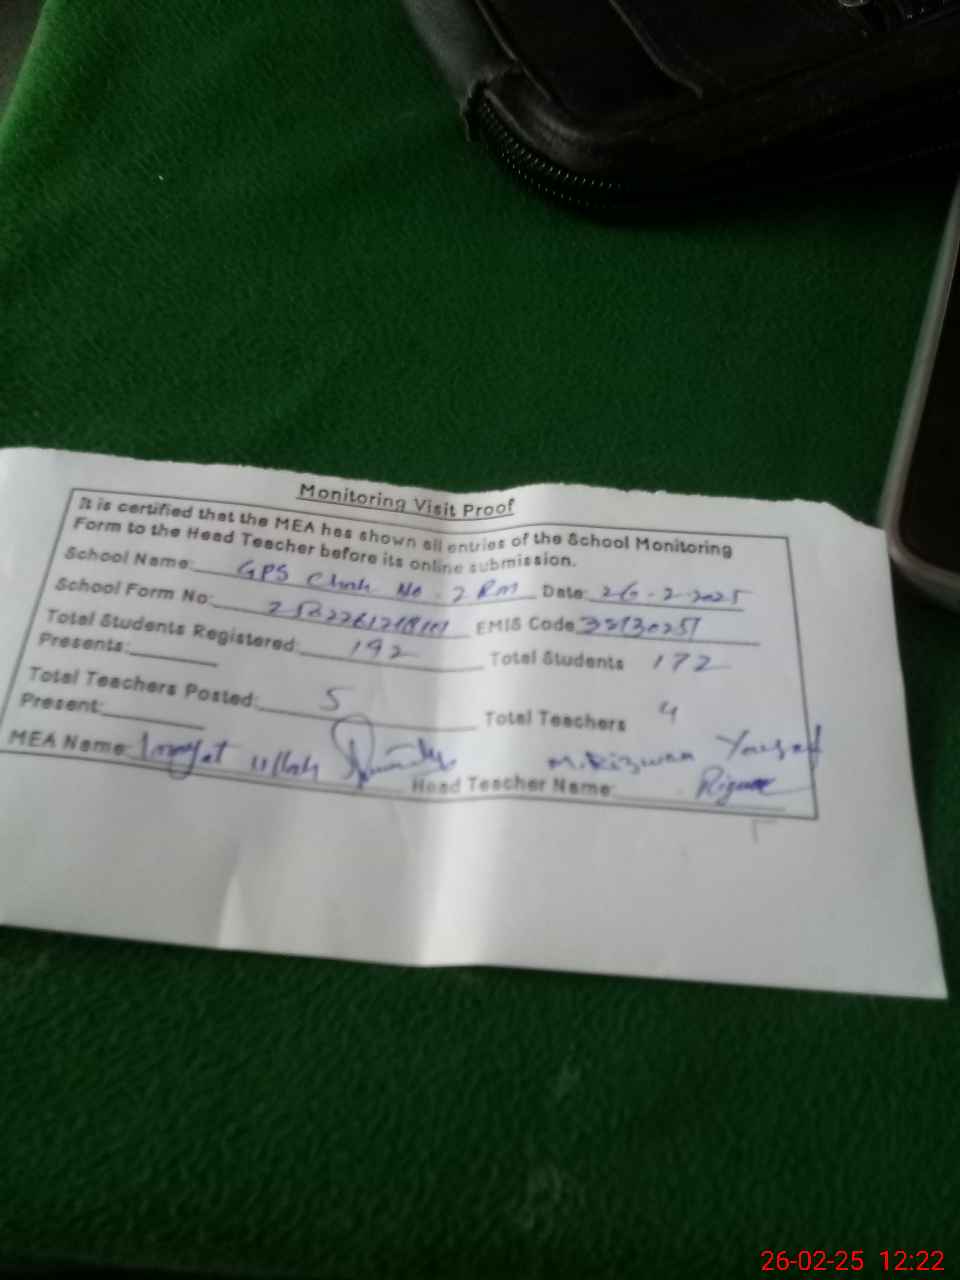 Monitoring Visit Proof
It is certified that the MEA has shown all entries of the School Monitoring
Form to the Head Teacher before its online submission.
School Name: GPS Chak No. 2 RM Date: 26-2-2025
School Form No: EMIS Code
Total Students Registered: 192 Total Students 172
Presents:
Total Teachers Posted: 5 Total Teachers 4
Present:
MEA Name: ullah M. Rizwan Yousaf
Head Teacher Name:
26-02-25 12:22